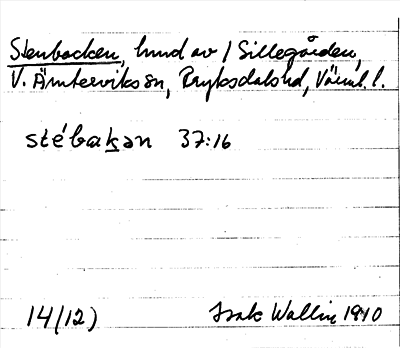 Stenbacken, hmd av / Sillegården,
V. Ämterviks sn, Fryksdals hd, Värml. l.
stébakən 37:16
14(12) Isak Wallin 1940